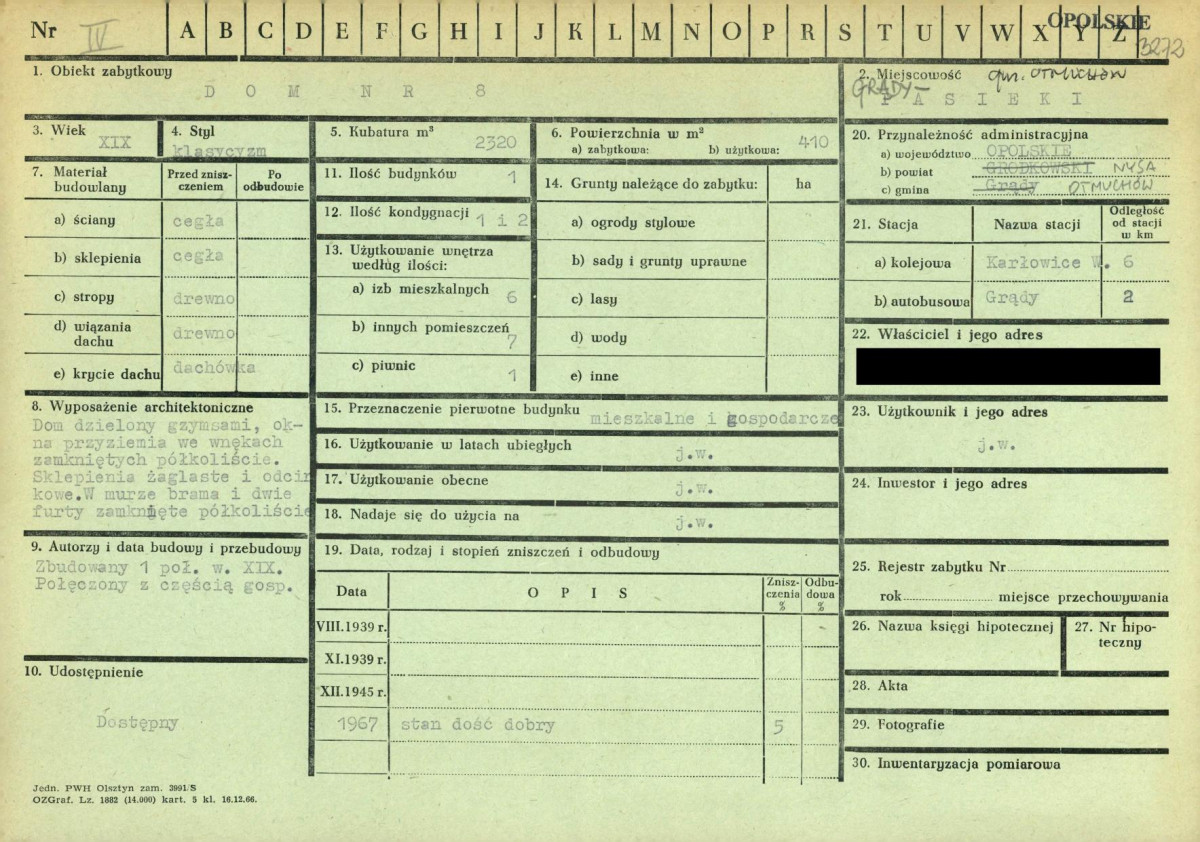 Nr IV A B C D E F G H I J K L M N O P R S T U V W X Y Z OPOLSKIE
3272
1. Obiekt zabytkowy
DOM NR 8
2. Miejscowość gm. OTMUCHÓW
GRĄDY-
PASIEKI
3. Wiek
XIX
4. Styl
klasycyzm
5. Kubatura m³
2320
6. Powierzchnia w m²
a) zabytkowa: b) użytkowa: 410
7. Materiał budowlany
Przed zniszczeniem
Po odbudowie
a) ściany cegła
b) sklepienia cegła
c) stropy drewno
d) wiązania dachu drewno
e) krycie dachu dachówka
8. Wyposażenie architektoniczne
Dom dzielony gzymsami, ok-
na przyziemia we wnękach
zamkniętych półkoliście.
Sklepienia żaglaste i odcin
kowe.W murze brama i dwie
furty zamknięte półkoliście
9. Autorzy i data budowy i przebudowy
Zbudowany 1 poł. w. XIX.
Połęczony z częścią gosp.
10. Udostępnienie
Dostępny
11. Ilość budynków 1
12. Ilość kondygnacji 1 i 2
13. Użytkowanie wnętrza
według ilości:
a) izb mieszkalnych
6
b) innych pomieszczeń
7
c) piwnic
1
14. Grunty należące do zabytku: ha
a) ogrody stylowe
b) sady i grunty uprawne
c) lasy
d) wody
e) inne
15. Przeznaczenie pierwotne budynku mieszkalne i gospodarcze
16. Użytkowanie w latach ubiegłych
j.w.
17. Użytkowanie obecne
j.w.
18. Nadaje się do użycia na
j.w.
19. Data, rodzaj i stopień zniszczeń i odbudowy
Data OPIS Zniszczenia % Odbudowa %
VIII.1939 r.
XI.1939 r.
XII.1945 r.
1967 stan dość dobry 5
20. Przynależność administracyjna
a) województwo OPOLSKIE
b) powiat GRODKOWSKI NYSA
c) gmina Grądy OTMUCHÓW
21. Stacja Nazwa stacji Odległość od stacji w km
a) kolejowa Karłowice W. 6
b) autobusowa Grądy 2
22. Właściciel i jego adres
23. Użytkownik i jego adres
j.w.
24. Inwestor i jego adres
25. Rejestr zabytku Nr
rok miejsce przechowywania
26. Nazwa księgi hipotecznej
27. Nr hipo-
teczny
28. Akta
29. Fotografie
30. Inwentaryzacja pomiarowa
Jedn. PWH Olsztyn zam. 3991/S
OZGraf. Lz. 1882 (14.000) kart. 5 kl. 16.12.66.